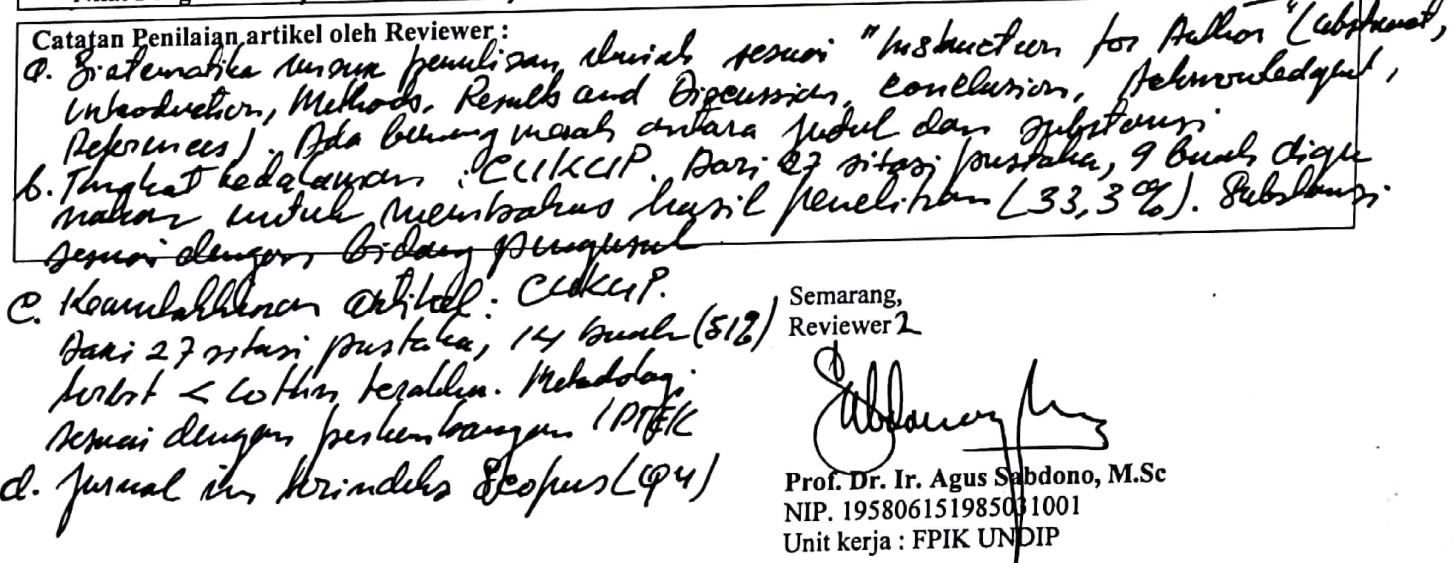 Catatan Penilaian artikel oleh Reviewer :
a. Sistematika unsur penulisan ilmiah sesuai "Instruction for Author" (abstract,
Introduction, Methods, Results and Discussion, Conclusion, Acknowledgment,
References). Ada benang merah antara judul dan substansi
b. Tingkat kedalaman : CUKUP. Dari 27 sitasi pustaka, 9 buah digu
nakan untuk membahas hasil penelitian (33,3%). Substansi
sesuai dengan bidang pengusul
c. Kemutakhiran artikel : CUKUP.
Dari 27 sitasi pustaka, 14 buah (51%)
terbit < 10 thn terakhir. Metodologi
sesuai dengan perkembangan IPTEK
d. Jurnal ini terindeks Scopus (Q4)
Semarang,
Reviewer 2
Prof. Dr. Ir. Agus Sabdono, M.Sc
NIP. 195806151985031001
Unit kerja : FPIK UNDIP